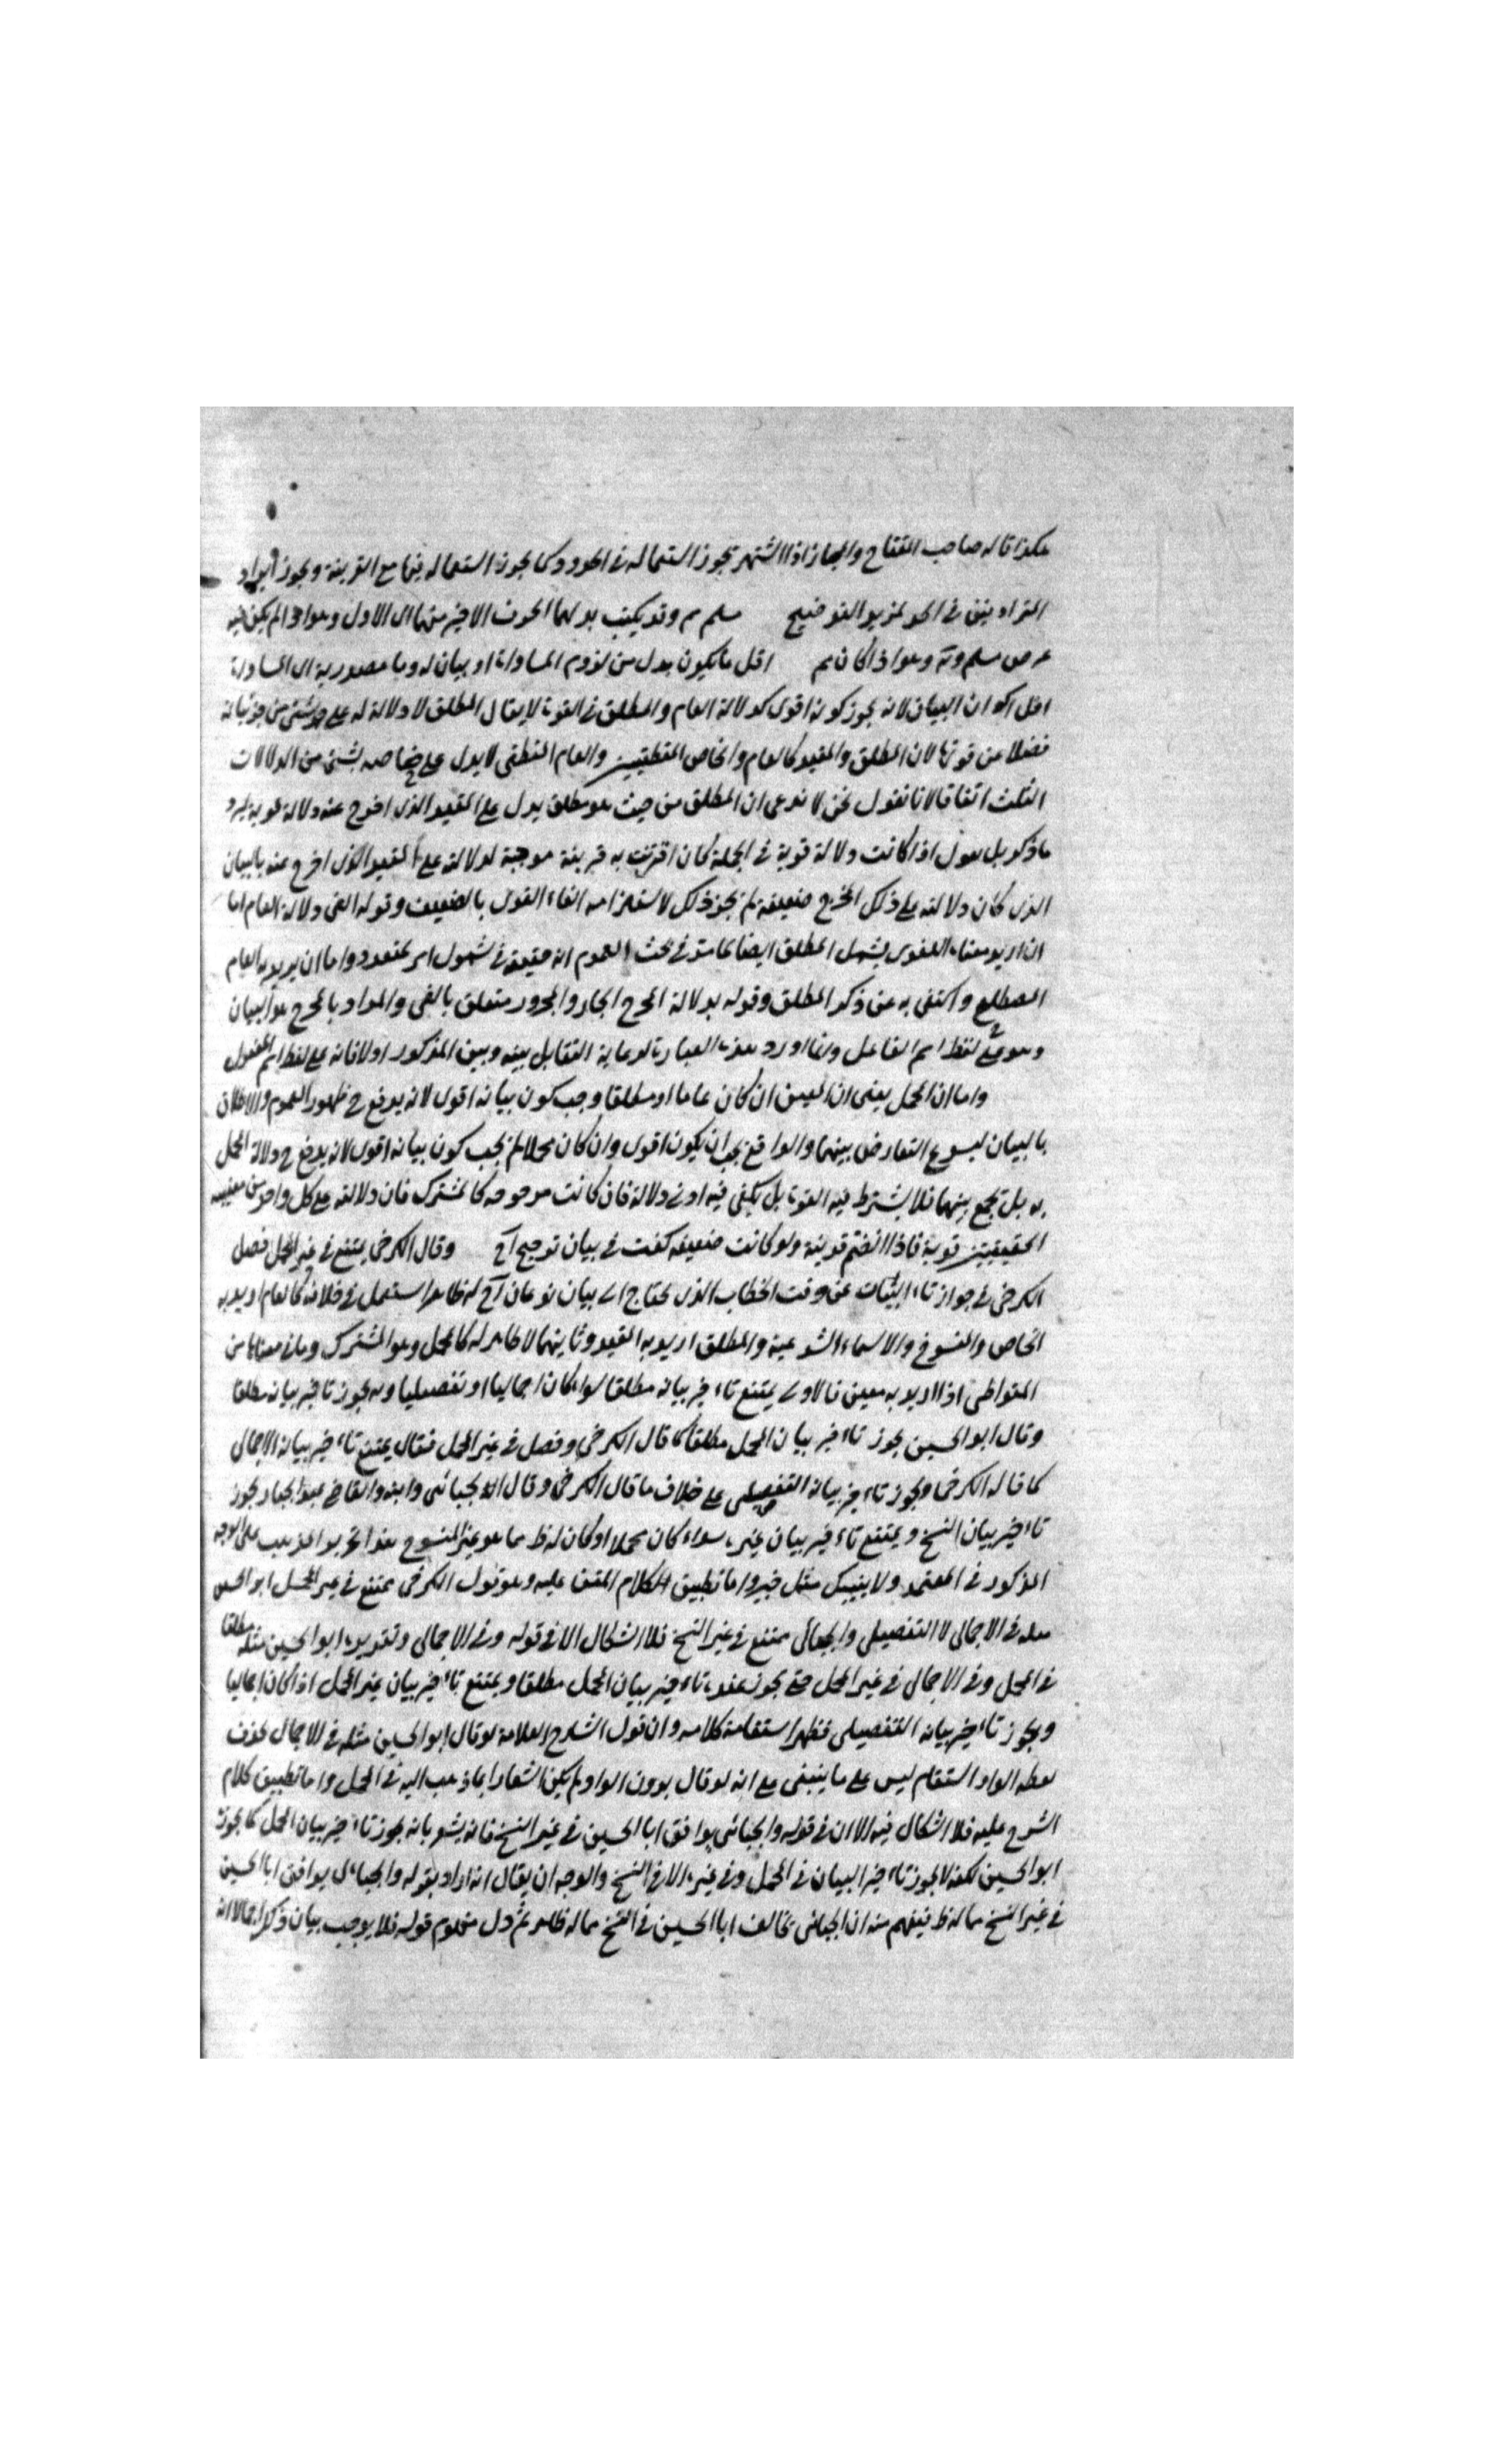 هكذا قاله صاحب المفتاح والمجاز اذا اشتهر يجوز استعماله في الحدود كما يجوز استعماله فيها مع القرينة ويجوز ايراد
المترادفين في الحد لمزيد التوضيح وقد يكتب بدلهما الحرف الاخير منهما الاول وهو ما لم يكن فيه
وهو اذا كان اقل ما يكون بدل من لزوم المساواة او بيان له وما مصدرية اي المساواة
اقل اكوان البيان لانه يجوز كونه اقوى كدلالة العام والمطلق في القوة لا يقال المطلق لا دلالة له على شئ من جزئياته
فضلا عن قوتها لان المطلق والمقيد كالعام والخاص المنطقيين والعام المنطقي لا يدل على خاصه بشئ من الدلالات
الثلث اتفاقا لانا نقول نحن لا ندعي ان المطلق من حيث هو مطلق يدل على المقيد الذي اخرج عنه دلالة قوية ليرد
ما ذكر بل نقول اذا كانت دلالة قوية في الجملة كان اقترنت به قرينة موجبة لدلالته على المقيد الذي اخرج عنه بالبيان
الذي كان دلالته على ذلك المخرج ضعيفة لم يجز ذلك لاستلزامه الغاء القوي بالضعيف وقوله الغي دلالة العام اما
ان اريد معناه اللغوي يشمل المطلق ايضا كما مر في بحث العموم انه حقيقة في شمول امر لمتعدد واما ان يريد به العام
المصطلح واكتفى به عن ذكر المطلق وقوله بدلالة المخرج الجار والمجرور متعلق بالغي والمراد بالمخرج هو البيان
وهو على لفظ اسم الفاعل وانما اورد هذه العبارة لرعاية التقابل بينه وبين المذكور اولا فانه على لفظ اسم المفعول
واما ان المجمل يعني ان المبين ان كان عاما او مطلقا وجب كون بيانه اقوى لانه يرفع ح ظهور العموم والاطلاق
بالبيان ليسوغ التعارض بينهما والواقع يجب ان يكون اقوى وان كان مجملا لم يجب كون بيانه اقوى لانه يرفع ح دلالة المجمل
به بل يجمع بينهما فلا يشترط فيه القوة بل يكفي فيه ادنى دلالة فان كانت مرجوحة كالمشترك فان دلالته على كل واحد من معنييه
الحقيقيين قوية فاذا انضم قرينة ولو كانت ضعيفه كفت في بيان ترجيح آخ وقال الكرخي يمتنع في غير المجمل فصل
الكرخي في جواز تاخير البيان عن وقت الخطاب الذي يحتاج الى بيان نوعان آخ له ظاهر استعمل في خلافه كالعام اريد به
الخاص والمنسوخ والاسماء الشرعية والمطلق اريد به المقيد وثانيهما لا ظاهر له كالمجمل وهو المشترك وما في معناها من
المتواطي اذا اريد به معين فالاول يمتنع تاخير بيانه مطلقا سواء كان اجماليا او تفصيليا و يجوز تاخير بيانه مطلقا
وقال ابو الحسين يجوز تاخير بيان المجمل مطلقا كما قال الكرخي وفصل في غير المجمل فقال يمتنع تاخير بيانه الاجمالي
كما قاله الكرخي ويجوز تاخير بيانه التفصيلي على خلاف ما قال الكرخي وقال الجبائي وابنه والقاضي عبد الجبار يجوز
تاخير بيان النسخ ويمتنع تاخير بيان غيره سواء كان مجملا او كان له ظ مما هو غير المنسوخ هذا تحرير المذهب على الوجه
المذكور في المعتمد ولا ينبئك مثل خبير واما تطبيق الكلام المتن عليه وهو قول الكرخي يمتنع في غير المجمل ابو الحسين
مثله في الاجمالي لا التفصيلي والجبائي يمتنع في غير النسخ فلا اشكال الا في قوله وفي الاجمالي وتقريره ابو الحسين مثله مطلقا
في المجمل وفي الاجمالي في غير المجمل حتى يجوز عنده تاخير بيان المجمل مطلقا ويمتنع تاخير بيان غير المجمل اذا كان اجماليا
ويجوز تاخير بيانه التفصيلي فظهر استقامة كلامه وان قول الشارح العلامة لو قال ابو الحسين مثله في الاجمال بحذف
لفظة الواو استقام ليس على ما ينبغي مع انه لو قال بدون الواو لم يكن اشعارا بما ذهب اليه في المجمل واما تطبيق كلام
الشرح عليه فلا اشكال فيه الا ان في قوله والجبائي يوافق ابا الحسين في غير النسخ فانه يشعر بانه يجوز تاخير بيان المجمل كما يجوزه
ابو الحسين لكنه لا يجوز تاخير البيان في المجمل وفي غيره الا في النسخ والوجه ان يقال انه اراد بقوله والجبائي يوافق ابا الحسين
في غير النسخ مما له ظ فيفهم منه ان الجبائي يخالف ابا الحسين في النسخ مما له ظاهر ثم دل مفهوم قوله فلا يوجب بيان ذكر اجمالا انه